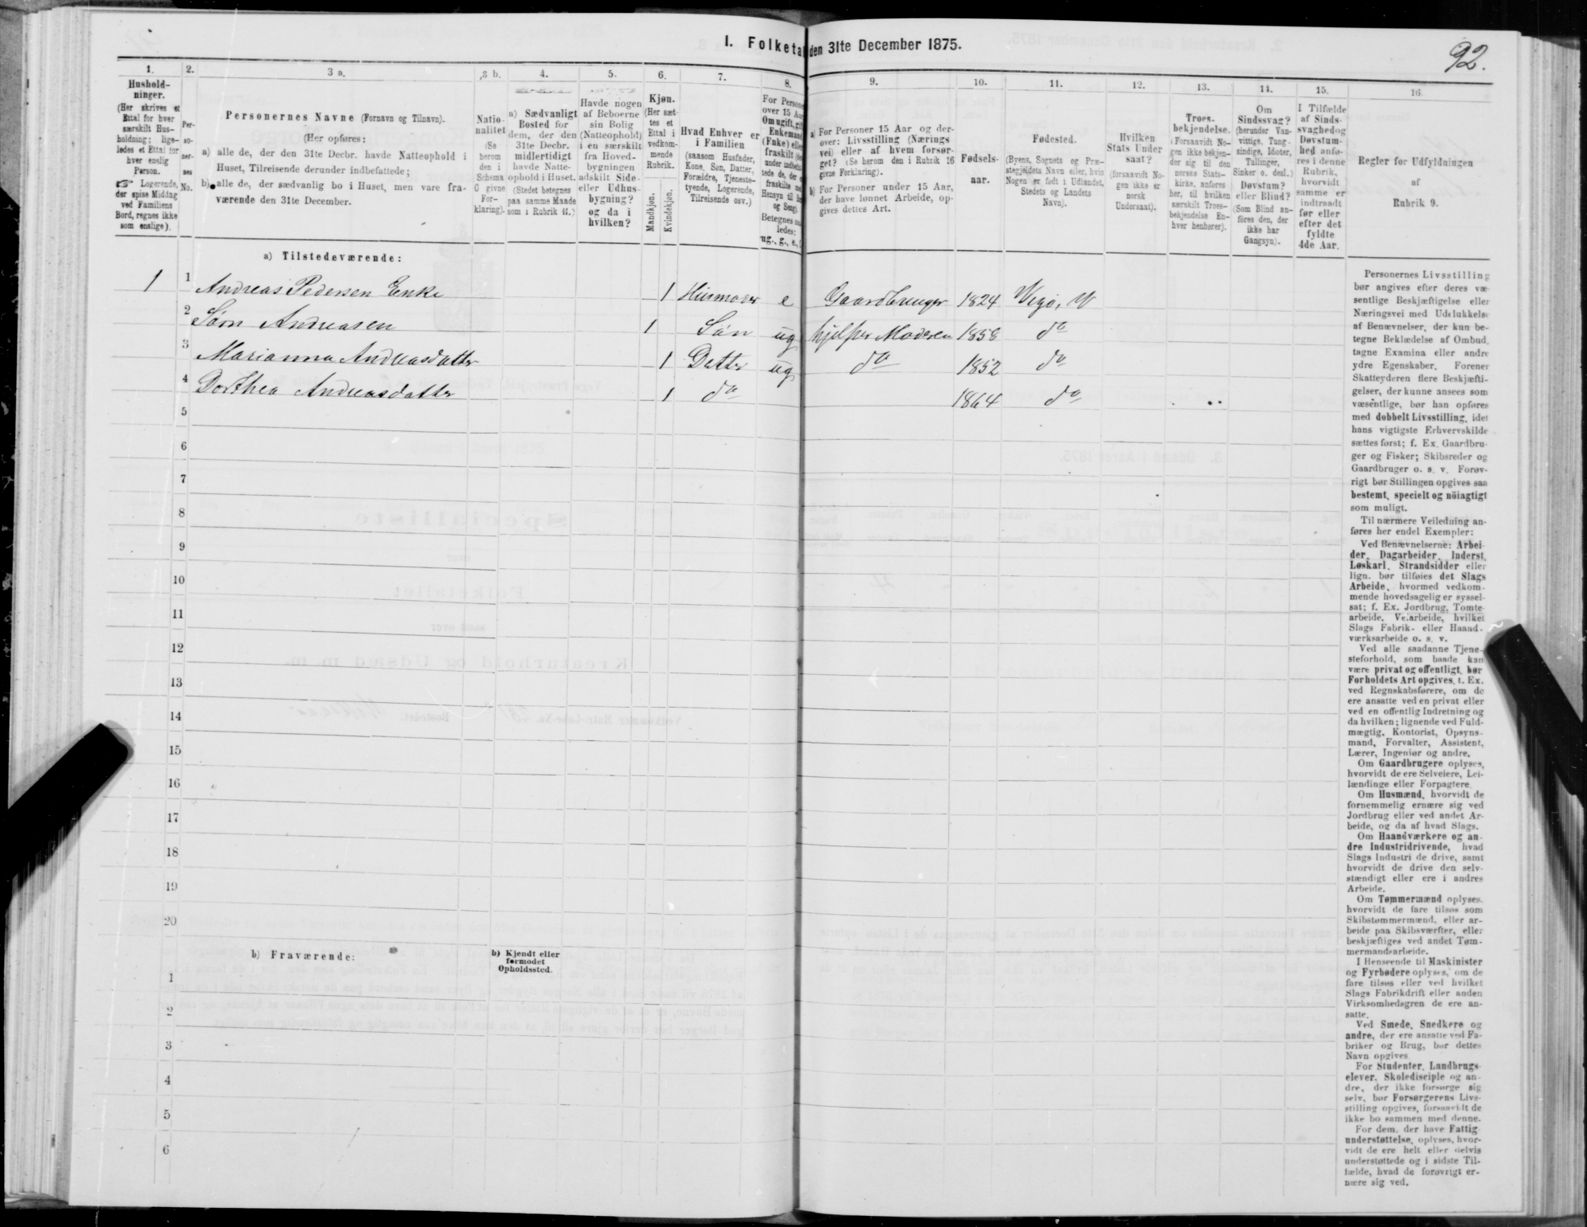 I. Folketa den 31te December 1875.
92.
1.
Hushold-
ninger.
(Her skrives et
Ettal for hver
særskilt Hus-
holdning; lige-
ledes et Ettal for
hver enslig
Person.
☞ Logerende,
der spise Middag
ved Familiens
Bord, regnes ikke
som enslige).
2.
Per-
so-
ner-
nes
No.
3 a.
Personernes Navne (Fornavn og Tilnavn).
(Her opføres:
a) alle de, der den 31te Decbr. havde Natteophold i
Huset, Tilreisende derunder indbefattede;
b) alle de, der sædvanlig bo i Huset, men vare fra-
værende den 31te December.
3 b.
Natio-
nalitet
(Se
herom
den i
Schema
givne
For-
klaring).
4.
a) Sædvanligt
Bosted for
dem, der den
31te Decbr.
midlertidigt
havde Natte-
ophold i Huset.
(Stedet betegnes
paa samme Maade
som i Rubrik 11.)
5.
Havde nogen
af Beboerne
sin Bolig
(Natteophold)
i en særskilt
fra Hoved-
bygningen
adskilt Side-
eller Udhus-
bygning?
og da i
hvilken?
6.
Kjøn.
(Her sæt-
tes et
Ettal i
vedkom-
mende
Rubrik.
Mandkjøn.
Kvindekjøn.
7.
Hvad Enhver er
i Familien
(saasom Husfader,
Kone, Søn, Datter,
Forældre, Tjeneste-
tyende, Logerende,
Tilreisende osv.)
8.
For Persone
over 15 Aa
Om ugift, gi
Enkemand
(Enke) elle
fraskilt
ug., g., e.,
9.
a) For Personer 15 Aar og der-
over: Livsstilling (Nærings-
vei) eller af hvem forsør-
get? (Se herom den i Rubrik 16
givne Forklaring).
b) For Personer under 15 Aar,
der have lønnet Arbeide, op-
gives dettes Art.
10.
Fødsels-
aar.
11.
Fødested.
(Byens, Sognets og Præ-
stegjeldets Navn eller, hvis
Nogen er født i Udlandet,
Stedets og Landets
Navn).
12.
Hvilken
Stats Under-
saat?
(forsaavidt No-
gen ikke er
norsk
Undersaat).
13.
Troes-
bekjendelse.
(Forsaavidt No-
gen ikke bekjen-
der sig til den
norske Stats-
kirke, anføres
her, til hvilken
særskilt Troes-
bekjendelse En-
hver henhører).
14.
Om
Sindssvag?
(herunder Van-
vittige, Tung-
sindige, Idioter,
Tullinger,
Sinker o. desl.)
Døvstum?
eller Blind?
(Som Blind an-
føres den, der
ikke har
Gangsyn).
15.
I Tilfælde
af Sinds-
svaghed og
Døvstum-
hed anfø-
res i denne
Rubrik,
hvorvidt
samme er
indtraadt
før eller
efter det
fyldte
4de Aar.
16.
Regler for Udfyldningen
af
Rubrik 9.
a) Tilstedeværende:
1 1 Andreas Pedersen Enke 1 Husmoder e Gaardbruger 1824 Vegø, N
2 Sørn Andreasen 1 Søn ug hjelper Moderen 1858 do
3 Marianna Andreasdatter 1 Datter ug do 1852 do
4 Dorthea Andreasdatter 1 do 1864 do
5
6
7
8
9
10
11
12
13
14
15
16
17
18
19
20
b) Fraværende:
b) Kjendt eller
formodet
Opholdssted.
1
2
3
4
5
6
Personernes Livsstilling
bør angives efter deres væ-
sentlige Beskjæftigelse eller
Næringsvei med Udelukkelse
af Benævnelser, der kun be-
tegne Beklædelse af Ombud,
tagne Examina eller andre
ydre Egenskaber. Forener
Skatteyderen flere Beskjæfti-
gelser, der kunne ansees som
væsentlige, bør han opføres
med dobbelt Livsstilling, idet
hans vigtigste Erhvervskilde
sættes først; f. Ex. Gaardbru-
ger og Fisker; Skibsreder og
Gaardbruger o. s. v. Forøv-
rigt bør Stillingen opgives saa
bestemt, specielt og nöiagtigt
som muligt.
Til nærmere Veiledning an-
føres her endel Exempler:
Ved Benævnelserne: Arbei-
der, Dagarbeider, Inderst,
Løskarl, Strandsidder eller
lign. bør tilføies det Slags
Arbeide, hvormed vedkom-
mende hovedsagelig er syssel-
sat; f. Ex. Jordbrug, Tomte-
arbeide, Veiarbeide, hvilket
Slags Fabrik- eller Haand-
værksarbeide o. s. v.
Ved alle saadanne Tjene-
steforhold, som baade kan
være privat og offentligt, bør
Forholdets Art opgives, t. Ex.
ved Regnskabsførere, om de
ere ansatte ved en privat eller
ved en offentlig Indretning og
da hvilken; lignende ved Fuld-
mægtig, Kontorist, Opsyns-
mand, Forvalter, Assistent,
Lærer, Ingeniør og andre.
Om Gaardbrugere oplyses,
hvorvidt de ere Selveiere, Lei-
lændinge eller Forpagtere.
Om Husmænd, hvorvidt de
fornemmelig ernære sig ved
Jordbrug eller ved andet Ar-
beide, og da af hvad Slags.
Om Haandværkere og an-
dre Industridrivende, hvad
Slags Industri de drive, samt
hvorvidt de drive den selv-
stændigt eller ere i andres
Arbeide.
Om Tømmermænd oplyses,
hvorvidt de fare tilsøs som
Skibstømmermænd, eller ar-
beide paa Skibsværfter, eller
beskjæftiges ved andet Tøm-
mermandsarbeide.
I Henseende til Maskinister
og Fyrbødere oplyses, om de
fare tilsøs eller ved hvilket
Slags Fabrikdrift eller anden
Virksomhedsgren de ere an-
satte.
Ved Smede, Snedkere og
andre, der ere ansatte ved Fa-
briker og Brug, bør dettes
Navn opgives.
For Studenter, Landbrugs-
elever, Skoledisciple og an-
dre, der ikke forsørge sig
selv, bør Forsørgerens Livs-
stilling opgives, forsaavidt de
ikke bo sammen med denne.
For dem, der have Fattig-
understøttelse, oplyses, hvor-
vidt de ere helt eller delvis
understøttede og i sidste Til-
fælde, hvad de forøvrigt er-
nære sig ved.